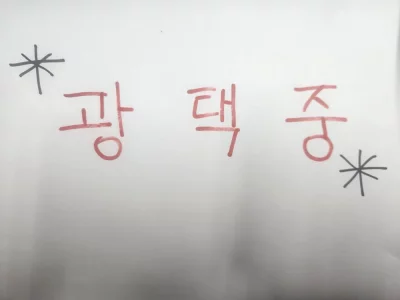 * 광택중 *